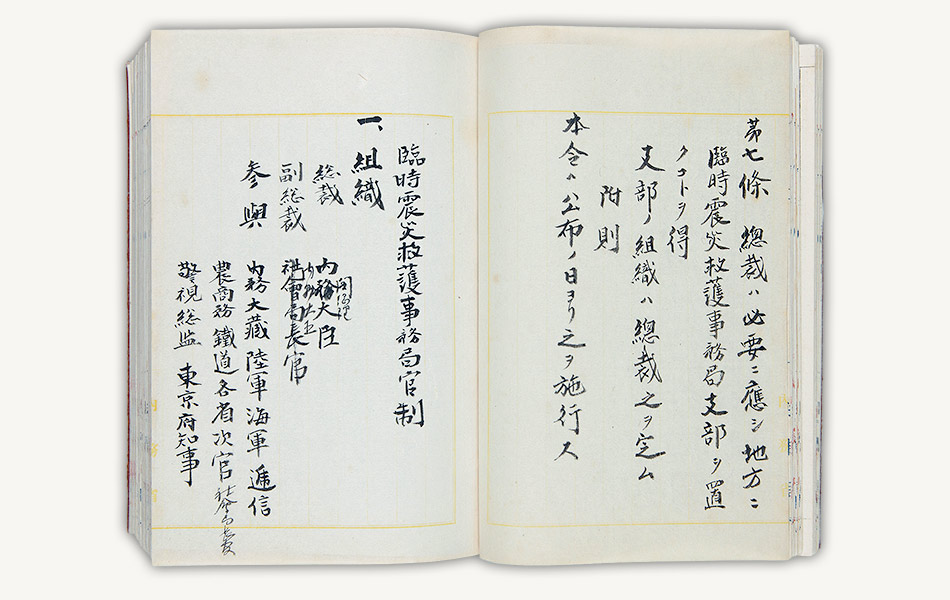 第七條　總裁ハ必要ニ應シ地方ニ
臨時震災救護事務局支部ヲ置
クコトヲ得
支部ノ組織ハ總裁之ヲ定ム
附則
本令ハ公布ノ日ヨリ之ヲ施行ス
臨時震災救護事務局官制
一、組織
総裁　内務大臣
副総裁　社會局長官
内務大臣
参與　内務大藏陸軍海軍逓信
農商務鐵道各省次官社会局長官
警視総監　東京府知事